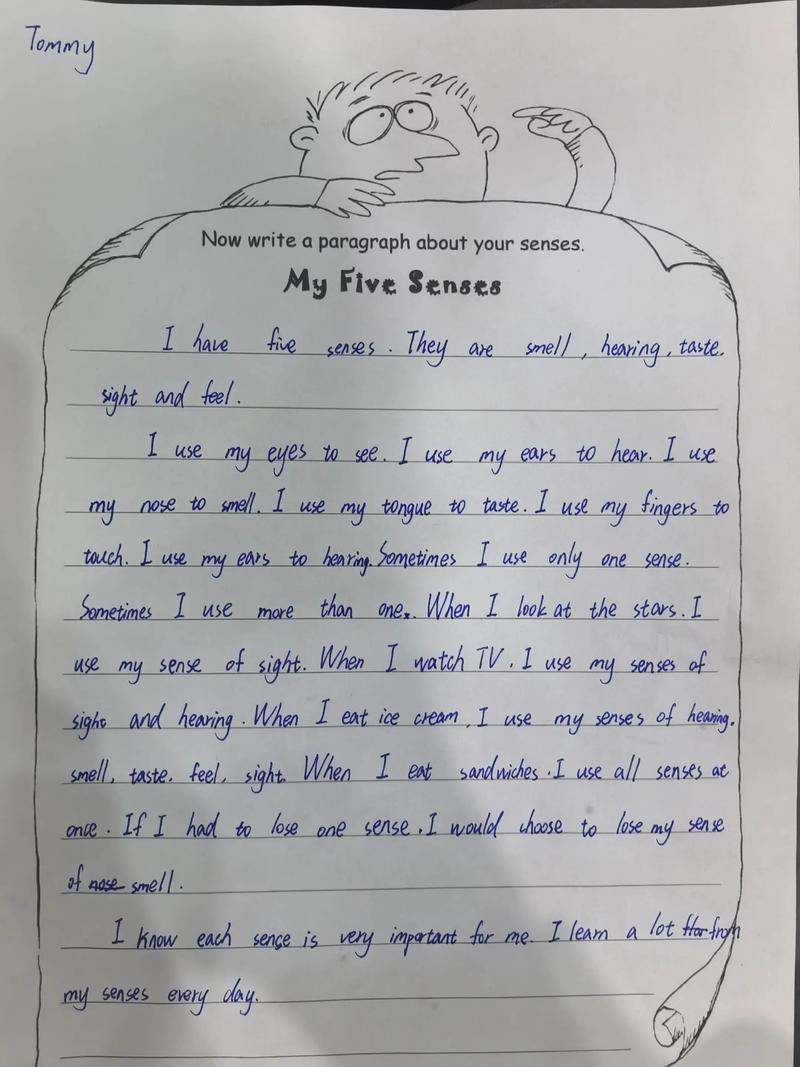 Tommy
Now write a paragraph about your senses.
My Five Senses
I have five senses. They are smell, hearing, taste.
sight and feel.
I use my eyes to see. I use my ears to hear. I use
my nose to smell. I use my tongue to taste. I use my fingers to
touch. I use my ears to hearing. Sometimes I use only one sense.
Sometimes I use more than one. When I look at the stars. I
use my sense of sight. When I watch TV. I use my senses of
sight and hearing. When I eat ice cream, I use my senses of hearing.
smell, taste. feel, sight. When I eat sandwiches. I use all senses at
once. If I had to lose one sense, I would choose to lose my sense
of nose smell.
I know each sense is very important for me. I learn a lot from
my senses every day.